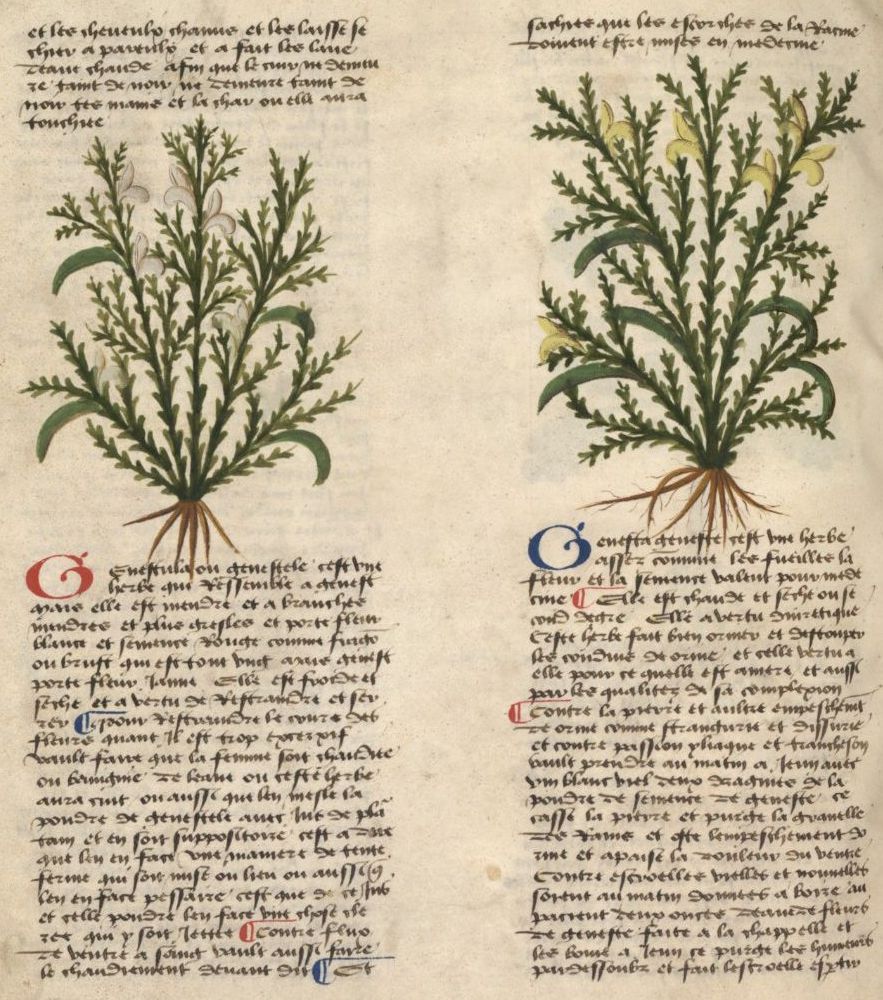 et les cheveulx chanus et les laisse se
chier a par eulx et a fait les lave
deaue chaude afin que le cuir ne demeu
re taint de noir ne demeure taint de
noir tes mains et la char ou elle aura
touchiee
Genestula ou genestele cest une
herbe qui ressemble a genest
mais elle est mendre et a branches
mendres et plus gresles et porte fleur
blance et semence rouge comme
ou brust qui est tout ung mais genest
porte fleur jaune Elle est froide et
seche et a vertu de restraindre et ser
rer pour restraindre le cours des
fleurs quant il est trop excexxif
vault faire que la femme soit chaudiee
ou baingnie de leaue ou ceste herbe
aura cuit ou aussi que len mesle la
poudre de genestele avec jus de plā
tam et en soit suppositoire cest a dire
que len en face une maniere de tente
ferme qui soit mise ou lieu ou aussi q̄
len en face pessaire cest que de ce jus
et celle pouldre len face une chose cle
re qui y soit jettee Contre flux
de ventre a sang vault aussi faire
le chaudiement devant dit Et
sachies que les escorches de la racine
doivent estre mises en medecine
Genesta geneste cest une herbe
assez commune les fueilles la
fleur et la semence valent pour mede
cine Elle est chaude et seche ou se
cond degre Elle a vertu diuretique
Ceste herbe fait bien oriner et destouper
les conduis de orine et celle vertu a
elle pour ce quelle est amere et aussi
par les qualitez de sa complexion
Contre la pierre et aultre empeschemēt
de orine comme strangurie et dissurie
et contre passion yliaque et trancheson
vault prendre au matin a jeun avec
vin blanc viel deux dragmes de la
poudre de semence de geneste ce
casse la pierre et purge la gravelle
des rains et oste lempeschement do
rine et apaise la douleur du ventre
Contre escroelles vielles et nouvelles
soient au matin donnees a boire au
pacient deux onces deaue de fleurs
de geneste faite a la chappelle et
les boive a jeun ce purge les humeurs
par dessoubz et fait lescroelle